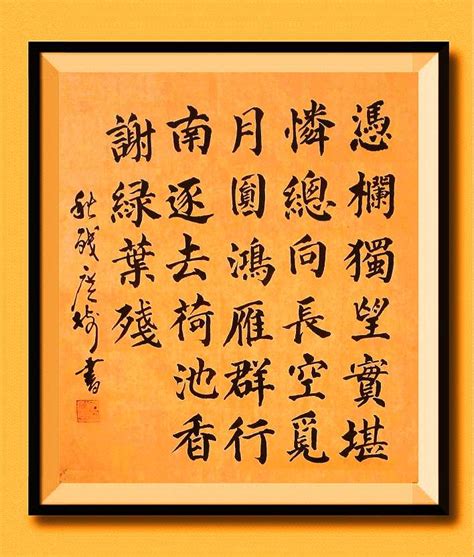 憑欄獨望實堪
憐總向長空覓
月圓鴻雁群行
南逐去荷池香
謝緑葉殘
秋殘書